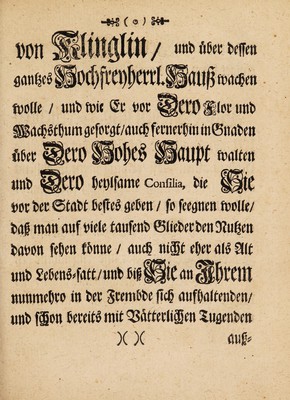 ( o )
von Klinglin / und über dessen
gantzes Hochfreyherrl. Hauß wachen
wolle / und wie Er vor Dero Flor und
Wachsthum gesorgt / auch fernerhin in Gnaden
über Dero Hohes Haupt walten
und Dero heylsame Consilia, die Sie
vor der Stadt bestes geben / so seegnen wolle /
daß man auf viele tausend Glieder den Nutzen
davon sehen könne / auch nicht eher als Alt
und Lebens-satt / und biß Sie an Ihrem
nunmehro in der Frembde sich aufhaltenden /
und schon bereits mit Vätterlichen Tugenden
)( )( auß-